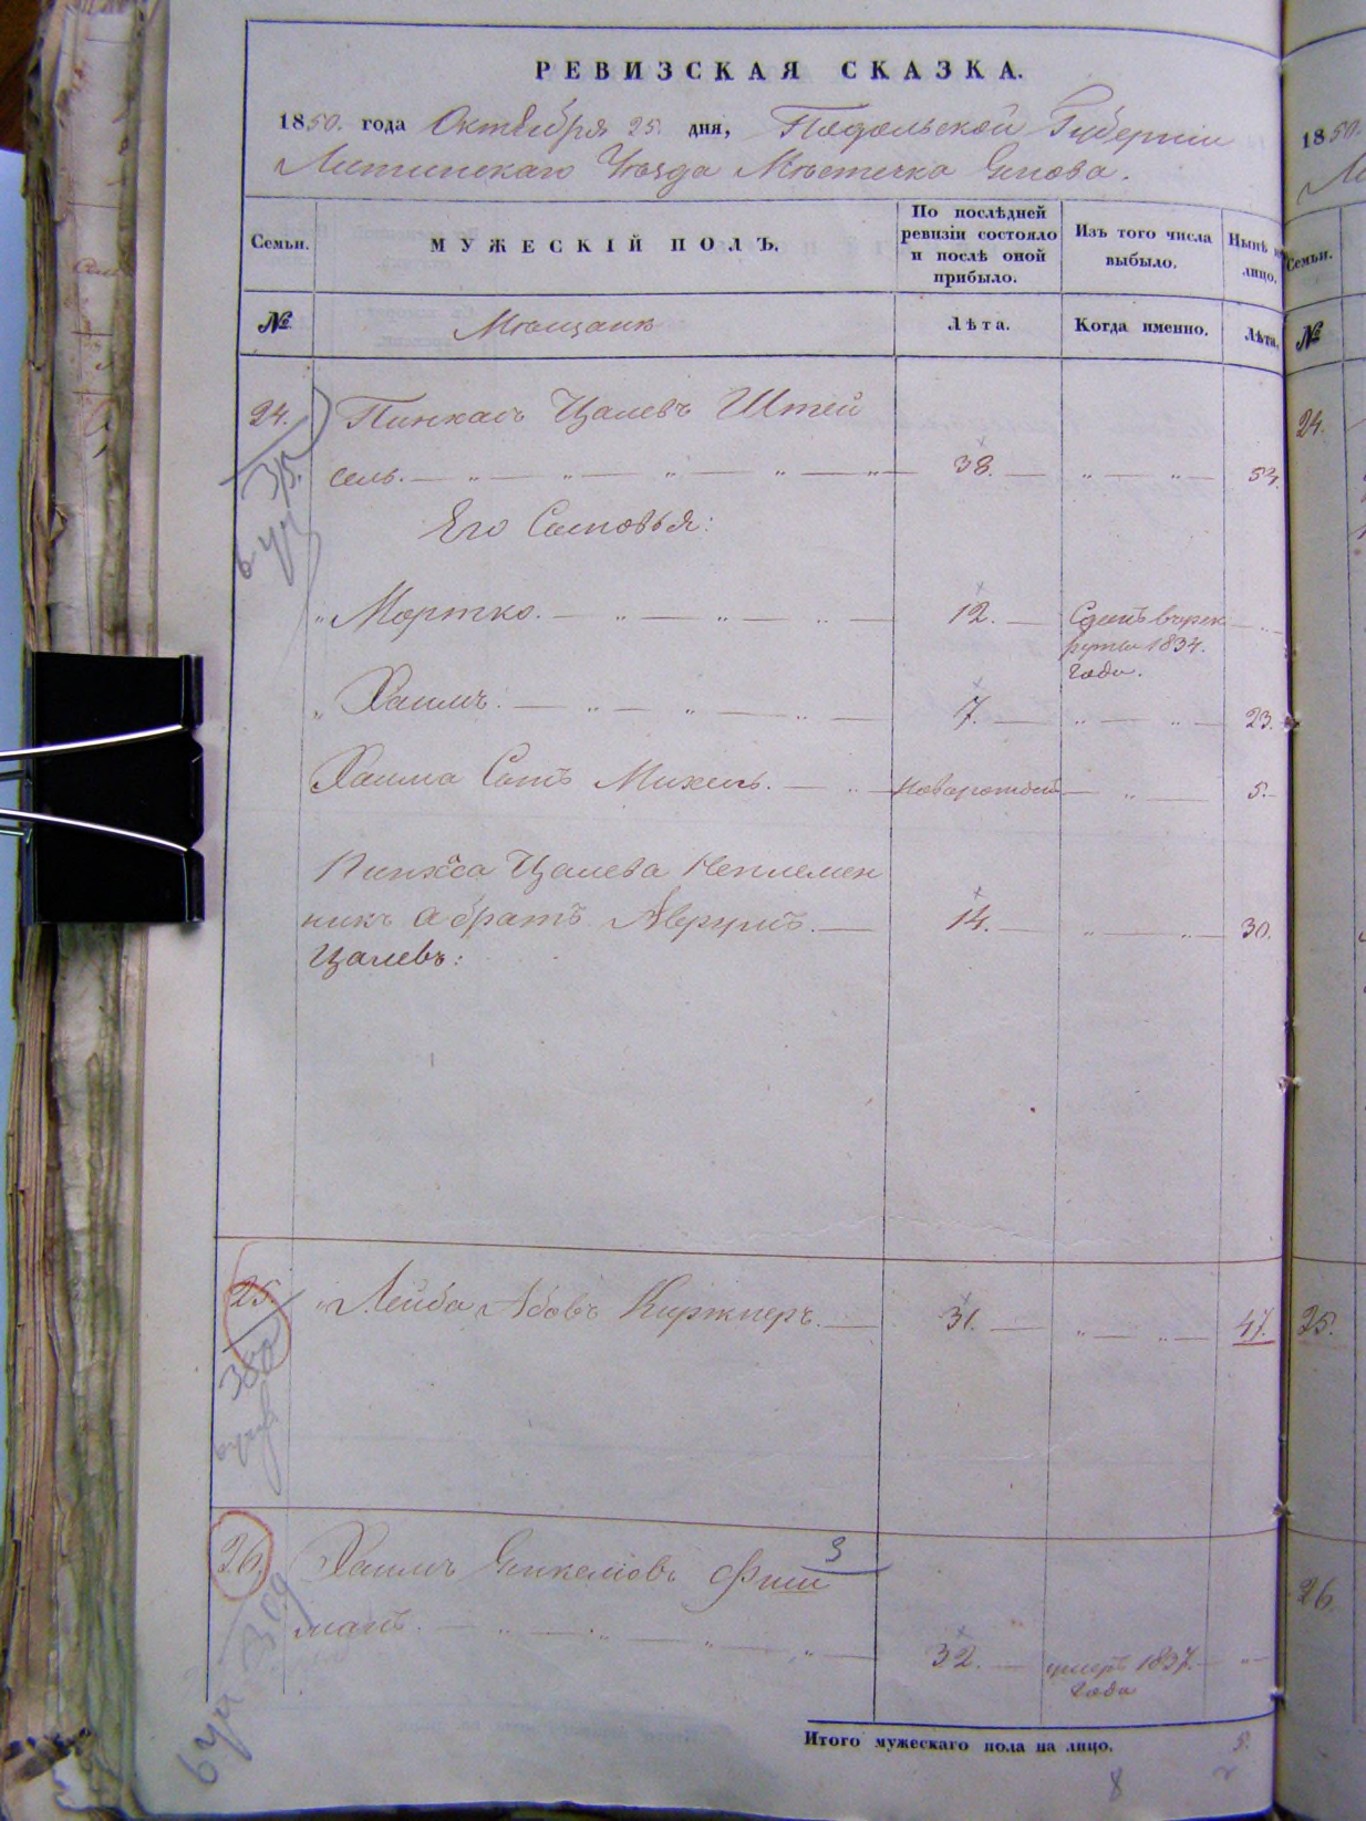 РЕВИЗСКАЯ СКАЗКА.
1850. года Октября 25. дня, Подольской Губернии
Литинскаго Уѣзда Мѣстечка Янова.
Семьи. МУЖЕСКІЙ ПОЛЪ. По послѣдней ревизіи состояло и послѣ оной прибыло. Изъ того числа выбыло. Нынѣ лицо.
№ Мѣщанъ Лѣта. Когда именно. Лѣта.
24. Пинкасъ Цалевъ Штей
сель. 38. 54.
Его Сыновья:
Мортко. 12. Сданъ въ рек
руты 1834.
года.
Хаимъ. 7. 23.
Хаима Сынъ Михель. новорожден 5.
Пинхаса Цалева Неплемен
никъ а братъ Аврумъ. 14. 30.
Цалевъ:
25. Лейба Абовъ Киржнеръ. 31. 47.
380
26. Хаимъ Янкелiовъ Фиш 3
манъ. 32. умеръ 1837.
года
Итого мужескаго пола на лицо. 5.
8
1850.
Семьи.
№
24.
25.
26